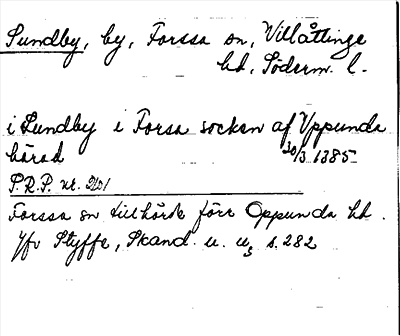 Sundby, by, Forssa sn, Villåttinge
hd, Söderm. l.
i Sundby i Forsa socken af Vppunda
härad 30/3 1385
S.R.P. nr. 2201
Forssa sn tillhörde förr Oppunda hd.
Jfr Styffe, Skand. u. u, s. 282